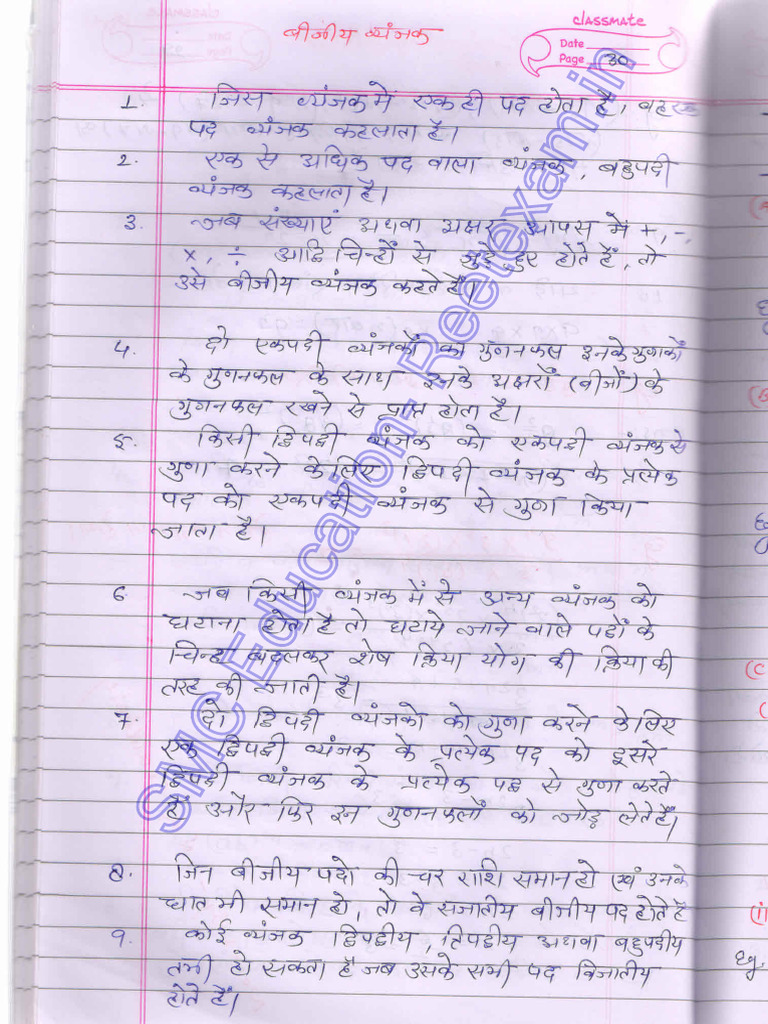 classmate
Date
Page 30
बीजीय व्यंजक
1. जिस व्यंजक में एक ही पद होता है, वह एक
पद व्यंजक कहलाता है।
2. एक से अधिक पद वाला व्यंजक, बहुपदी
व्यंजक कहलाता है।
3. जब संख्याएं अथवा अक्षर आपस में +, -,
×, ÷ आदि चिन्हों से जुड़े हुए होते हैं, तो
उसे बीजीय व्यंजक कहते हैं।
4. दो एकपदी व्यंजकों का गुणनफल इनके गुणकों
के गुणनफल के साथ इनके अक्षरों (बीजों) के
गुणनफल रखने से प्राप्त होता है।
5. किसी द्विपदी व्यंजक को एकपदी व्यंजक से
गुणा करने के लिए द्विपदी व्यंजक के प्रत्येक
पद को एकपदी व्यंजक से गुणा किया
जाता है।
6. जब किसी व्यंजक में से अन्य व्यंजक को
घटाना होता है तो घटाये जाने वाले पदों के
चिन्ह बदलकर शेष क्रिया योग की क्रिया की
तरह की जाती है।
7. दो द्विपदी व्यंजको को गुणा करने के लिए
एक द्विपदी व्यंजक के प्रत्येक पद को दूसरे
द्विपदी व्यंजक के प्रत्येक पद से गुणा करते
हैं और फिर इन गुणनफलों को जोड़ लेते हैं।
8. जिन बीजीय पदो की चर राशि समान हो एवं उनके
घात भी समान हो, तो वे सजातीय बीजीय पद होते है
9. कोई व्यंजक द्विपदीय, त्रिपदीय अथवा बहुपदीय
तभी हो सकता है जब उसके सभी पद विजातीय
होते हैं।
SMC Education- Reetexam.in